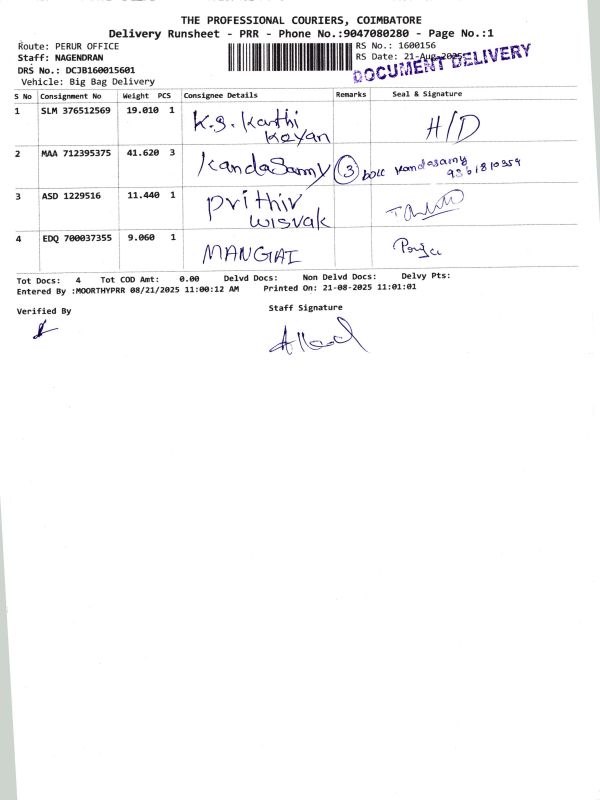 THE PROFESSIONAL COURIERS, COIMBATORE
Delivery Runsheet - PRR - Phone No.:9047080280 - Page No.:1
Route: PERUR OFFICE RS No.: 1600156
Staff: NAGENDRAN RS Date: 21-Aug-2025
DOCUMENT DELIVERY
DRS No.: DCJB160015601
Vehicle: Big Bag Delivery
S No Consignment No Weight PCS Consignee Details Remarks Seal & Signature
1 SLM 376512569 19.010 1 K.S. Karthi H/D
Keyan
2 MAA 712395375 41.620 3 Kandasamy 3 box Kandasamy
9361810359
3 ASD 1229516 11.440 1 Prithiv
wisvak
4 EDQ 700037355 9.060 1 MANGAI
Tot Docs: 4 Tot COD Amt: 0.00 Delvd Docs: Non Delvd Docs: Delvy Pts:
Entered By :MOORTHYPRR 08/21/2025 11:00:12 AM Printed On: 21-08-2025 11:01:01
Verified By Staff Signature